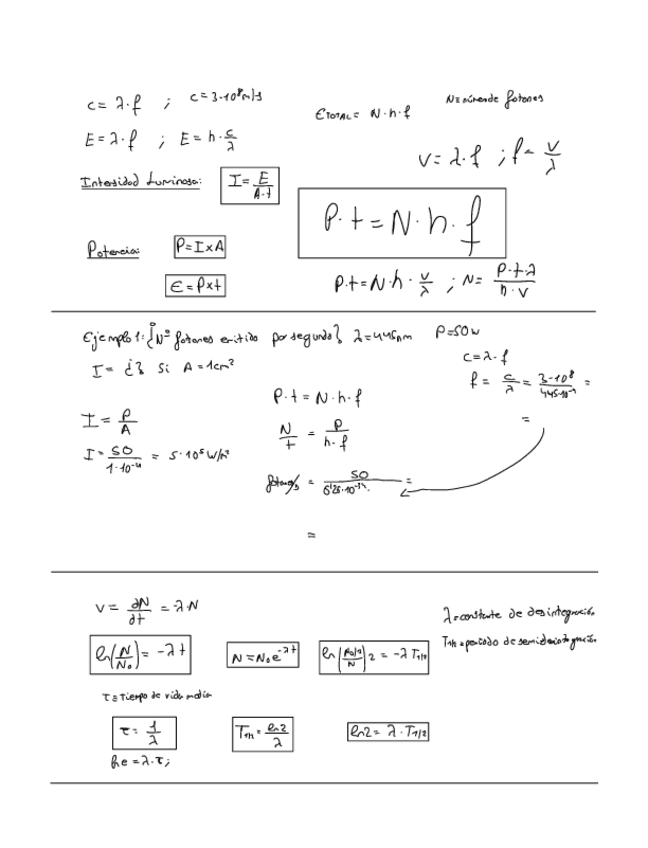 c = λ·f ; c = 3·10⁸ m/s
E = λ·f ; E = h·c/λ
E TOTAL = N·h·f
N = número de fotones
V = λ·f ; f = V/λ
Intensidad Luminosa: I = E/A·t
P·t = N·h·f
Potencia: P = I x A
E = P x t
P·t = N·h·V/λ ; N = P·t·λ/h·V
Ejemplo 1: ¿Nº fotones emitido por segundo? λ = 445nm P = 50w
I = ¿? Si A = 1cm²
c = λ·f
f = c/λ = 3·10⁸/445·10⁻⁹ =
=
P·t = N·h·f
I = P/A
N/t = P/h·f
I = 50/1·10⁻⁴ = 5·10⁵ W/m²
fotones/s = 50/6'26·10⁻³⁴· =
=
V = ∂N/∂t = -λ·N
λ = constante de desintegración
ln(N/N₀) = -λt
N = N₀e^-λt
2 = -λ T1/2
T1/2 = periodo de semidesintegración
τ = Tiempo de vida media
τ = 1/λ
T1/2 = ln2/λ
ln2 = λ·T1/2
ln e = λ·τ;